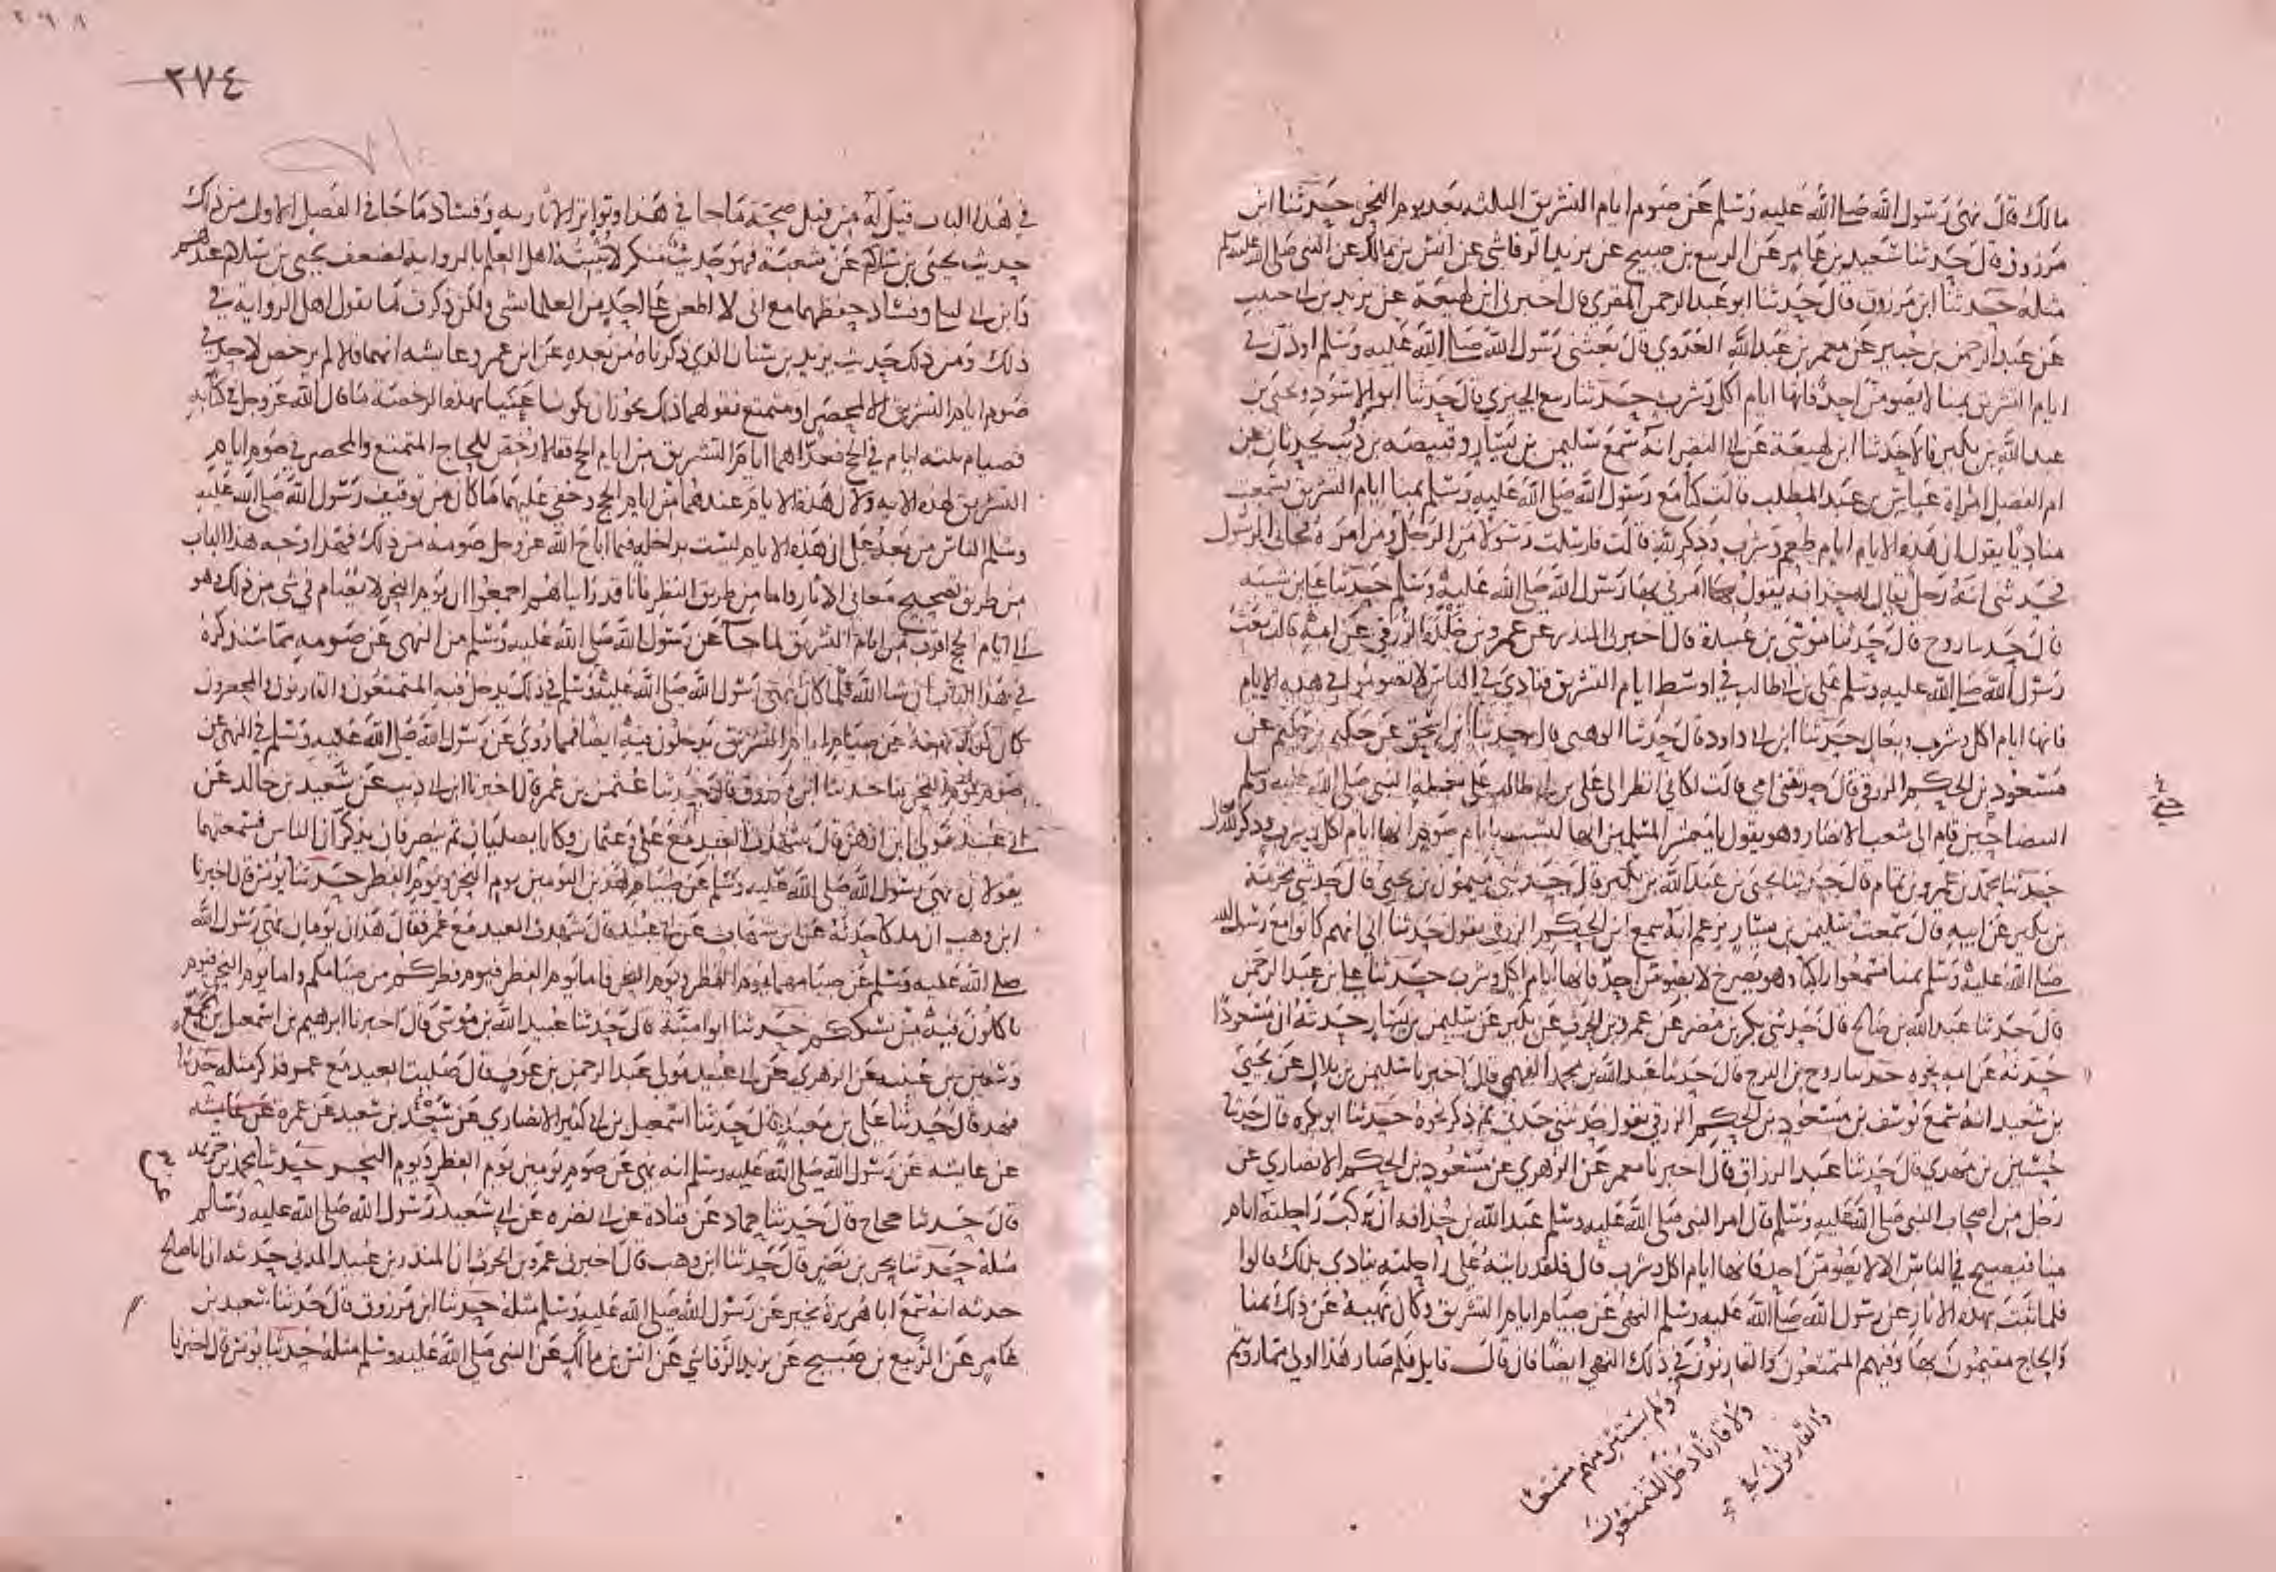 مالك قال نهى رسول الله صلى الله عليه وسلم عن صوم ايام التشريق الثلثه بعد يوم النحر حدثنا ابن
مرزوق قال حدثنا سعيد بن عامر عن الربيع بن صبيح عن يزيد الرقاشي عن انس بن مالك عن النبي صلى الله عليه وسلم
مثله حدثنا ابن مرزوق قال حدثنا ابو عبد الرحمن المقري قال اخبرني ابن لهيعة عن يزيد بن ابي حبيب
عن عبد الرحمن بن جبير عن معمر بن عبد الله العدوي قال بعثني رسول الله صلى الله عليه وسلم اوذن في
ايام التشريق بمنا لا يصومن احد فانها ايام اكل وشرب حدثنا ربيع الجيزي قال حدثنا ابو الاسود ويحيى بن
عبد الله بن بكير قالا حدثنا ابن لهيعة عن ابي النضر انه سمع سليمن بن يسار وقبيصه بن ذويب يحدثان عن
ام الفضل امراة عباس بن عبد المطلب قالت كنا مع رسول الله صلى الله عليه وسلم بمنا ايام التشريق فسمعت
مناديا يقول ان هذه الايام ايام طعم وشرب وذكر لله قالت فارسلت رسولا من الرجل ومن امره فجاني الرسول
فحدثني انه رجل يقال له حذافه يقول امرني بها رسول الله صلى الله عليه وسلم حدثنا علي بن شيبه
قال حدثنا روح قال حدثنا موسى بن عبيدة قال اخبرني المنذر عن عمرو بن خلدة الزرقي عن امه قالت بعث
رسول الله صلى الله عليه وسلم علي بن ابي طالب في اوسط ايام التشريق فنادى في الناس لا تصوموا في هذه الايام
فانها ايام اكل وشرب وبعال حدثنا ابن ابي داود قال حدثنا الوهبي قال حدثنا ابن اسحق عن حكيم بن حكيم عن
مسعود بن الحكم الزرقي قال حدثتني امي قالت لكاني انظر الى علي بن ابي طالب على بغلة النبي صلى الله عليه وسلم
البيضا حين قام الى شعب الانصار وهو يقول يا معشر المسلمين انها ليست بايام صوم انها ايام اكل وشرب وذكر لله
حدثنا محمد بن عمرو بن تمام قال حدثنا يحيى بن عبد الله بن بكير قال حدثني ميمون بن يحيى قال حدثني مخرمة
بن بكير عن ابيه قال سمعت سليمن بن يسار يزعم انه سمع ابن الحكم الزرقي يقول حدثنا ابي انهم كانوا مع رسول الله
صلى الله عليه وسلم بمنا فسمعوا راكبا وهو يصرخ لا يصومن احد فانها ايام اكل وشرب حدثنا علي بن عبد الرحمن
قال حدثنا عبد الله بن صالح قال حدثني بكر بن مضر عن عمرو بن الحرث عن بكير عن سليمن بن يسار حدثه ان مسعودا
حدثه عن امه نحوه حدثنا روح بن الفرج قال حدثنا عبد الله بن محمد الفهمي قال اخبرنا سليمن بن بلال عن يحيى
بن سعيد انه سمع يوسف بن مسعود بن الحكم الزرقي يقول حدثتني جدتي ثم ذكر نحوه حدثنا ابو بكره قال حدثنا
حسين بن مهدي قال حدثنا عبد الرزاق قال اخبرنا معمر عن الزهري عن مسعود بن الحكم الانصاري عن
رجل من اصحاب النبي صلى الله عليه وسلم قال امر النبي صلى الله عليه وسلم عبد الله بن حذافه ان يركب راحلته ايام
منا فيصيح في الناس الا لا يصومن احد فانها ايام اكل وشرب قال فلقد رايته على راحلته ينادي بذلك قالوا
فلما ثبت بهذه الاثار عن رسول الله صلى الله عليه وسلم النهي عن صيام ايام التشريق وكان نهيه عن ذلك بمنا
والحاج مقيمون بها وفيهم المتمتعون والقارنون في ذلك النهي ايضا فان قال قايل فلم صار هذا اولى مما رويتم
ولم يستثن منهم متمتعا
ولا قارنا دخل المتمتعون
والقارنون في
٢٧٤
في هذا الباب قيل له من قبل صحة ما جا في هذا وتواتر الاثار به وفساد ما جا في الفصل الاول من ذلك
حديث يحيى بن سلام عن شعبة فهو حديث منكر لا يثبته اهل العلم بالرواية لضعف يحيى بن سلام عندهم
وابن ابي ليلى وفساد حفظهما مع اني لا اطعن على احد من العلما بشي ولكن ذكرت ما يقول اهل الرواية في
ذلك ومن ذلك حديث يزيد بن سنان الذي ذكرناه من بعده عن ابن عمر وعايشه انهما قالا لم يرخص لاحد في
صوم ايام التشريق الا لمحصر او متمتع فقولهما ذلك يجوز ان يكونا عنيا بهذه الرخصة ما قال الله عز وجل في كتابه
فصيام ثلثه ايام في الحج فعداها ايام التشريق من ايام الحج فقالا رخص للحاج المتمتع والمحصر في صوم ايام
التشريق لهذه الايه ولان هذه الايام عندهما من ايام الحج وخفي عليهما ما كان من توقيف رسول الله صلى الله عليه
وسلم الناس من بعد على ان هذه الايام ليست بداخله فيما اباح الله عز وجل صومه من ذلك فهذا وجه هذا الباب
من طريق تصحيح معاني الاثار واما من طريق النظر فانا قد رايناهم اجمعوا ان يوم النحر لا يصام في شي من ذلك وهو
الى ايام الحج اقرب من ايام التشريق لما جا عن رسول الله صلى الله عليه وسلم من النهي عن صومه مما سنذكره
في هذا الباب ان شا الله فلما كان نهي رسول الله صلى الله عليه وسلم في ذلك يدخل فيه المتمتعون والقارنون والمحصرون
كان كذلك نهيه عن صيام ايام التشريق يدخلون فيه ايضا فمما روي عن رسول الله صلى الله عليه وسلم في النهي عن
صوم يوم النحر ما حدثنا ابن مرزوق قال حدثنا عثمن بن عمر قال اخبرنا ابن ابي ذيب عن سعيد بن خالد عن
ابي عبيد مولى ابن ازهر قال شهدت العيد مع علي وعثمان وكانا يصليان ثم ينصرفان يذكران الناس فسمعتهما
يقولان نهى رسول الله صلى الله عليه وسلم عن صيام هذين اليومين يوم النحر ويوم الفطر حدثنا يونس قال اخبرنا
ابن وهب ان ملكا حدثه عن ابن شهاب عن ابي عبيد قال شهدت العيد مع عمر فقال هذان يومان نهى رسول الله
صلى الله عليه وسلم عن صيامهما يوم الفطر ويوم النحر فاما يوم الفطر فيوم فطركم من صيامكم واما يوم النحر فيوم
تاكلون فيه من نسككم حدثنا ابو امية قال حدثنا عبيد الله بن موسى قال اخبرنا ابراهيم بن اسمعيل بن مجمع
وسفين بن عيينه عن الزهري عن ابي عبيد مولى عبد الرحمن بن عوف قال صليت العيد مع عمر فذكر مثله حدثنا
فهد قال حدثنا علي بن معبد قال حدثنا اسمعيل بن ابي كثير الانصاري عن سعد بن سعيد عن عمره عن عايشه
عن عايشه عن رسول الله صلى الله عليه وسلم انه نهى عن صوم يومين يوم الفطر ويوم النحر حدثنا محمد بن خزيمه
قال حدثنا حجاج قال حدثنا حماد عن قتاده عن ابي نضره عن ابي سعيد رسول الله صلى الله عليه وسلم
مثله حدثنا بحر بن نصر قال حدثنا ابن وهب قال اخبرني عمرو بن الحرث ان المنذر بن عبيد المدني حدثه ان ابا صالح
حدثه انه سمع ابا هريرة يخبر عن رسول الله صلى الله عليه وسلم مثله حدثنا ابن مرزوق قال حدثنا سعيد بن
عامر عن الربيع بن صبيح عن يزيد الرقاشي عن انس بن مالك عن النبي صلى الله عليه وسلم مثله حدثنا يونس قال اخبرنا